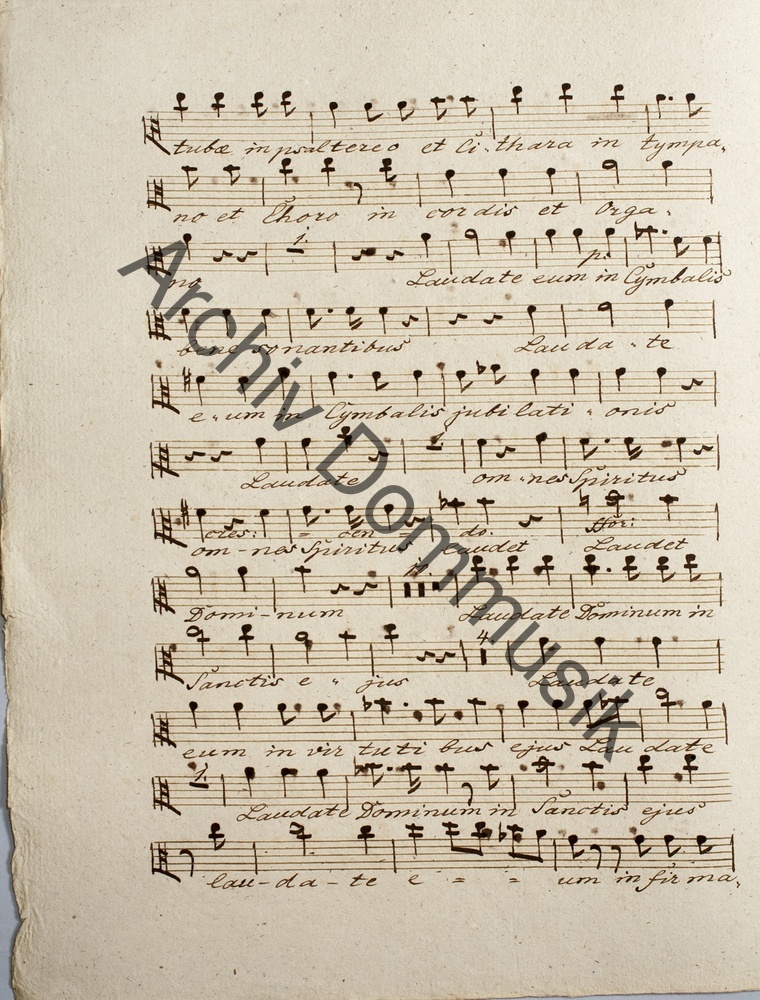 tubæ in psaltereo et Ci-thara in tympa-
no et Choro in cordis et Orga-
1.
p:
no Laudate eum in Cymbalis
bene sonantibus Lauda-te
e-um in Cymbalis jubilati-onis
Laudate om-nes Spiritus
cres: = cen = do.
om-nes Spiritus Laudet Laudet
Domi-num Laudate Dominum in
4.
Sanctis e-jus Laudate
eum in virtutibus ejus Laudate
1.
Laudate Dominum in Sanctis ejus
lau-da-te e = = um in firma-
Archiv Dommusik